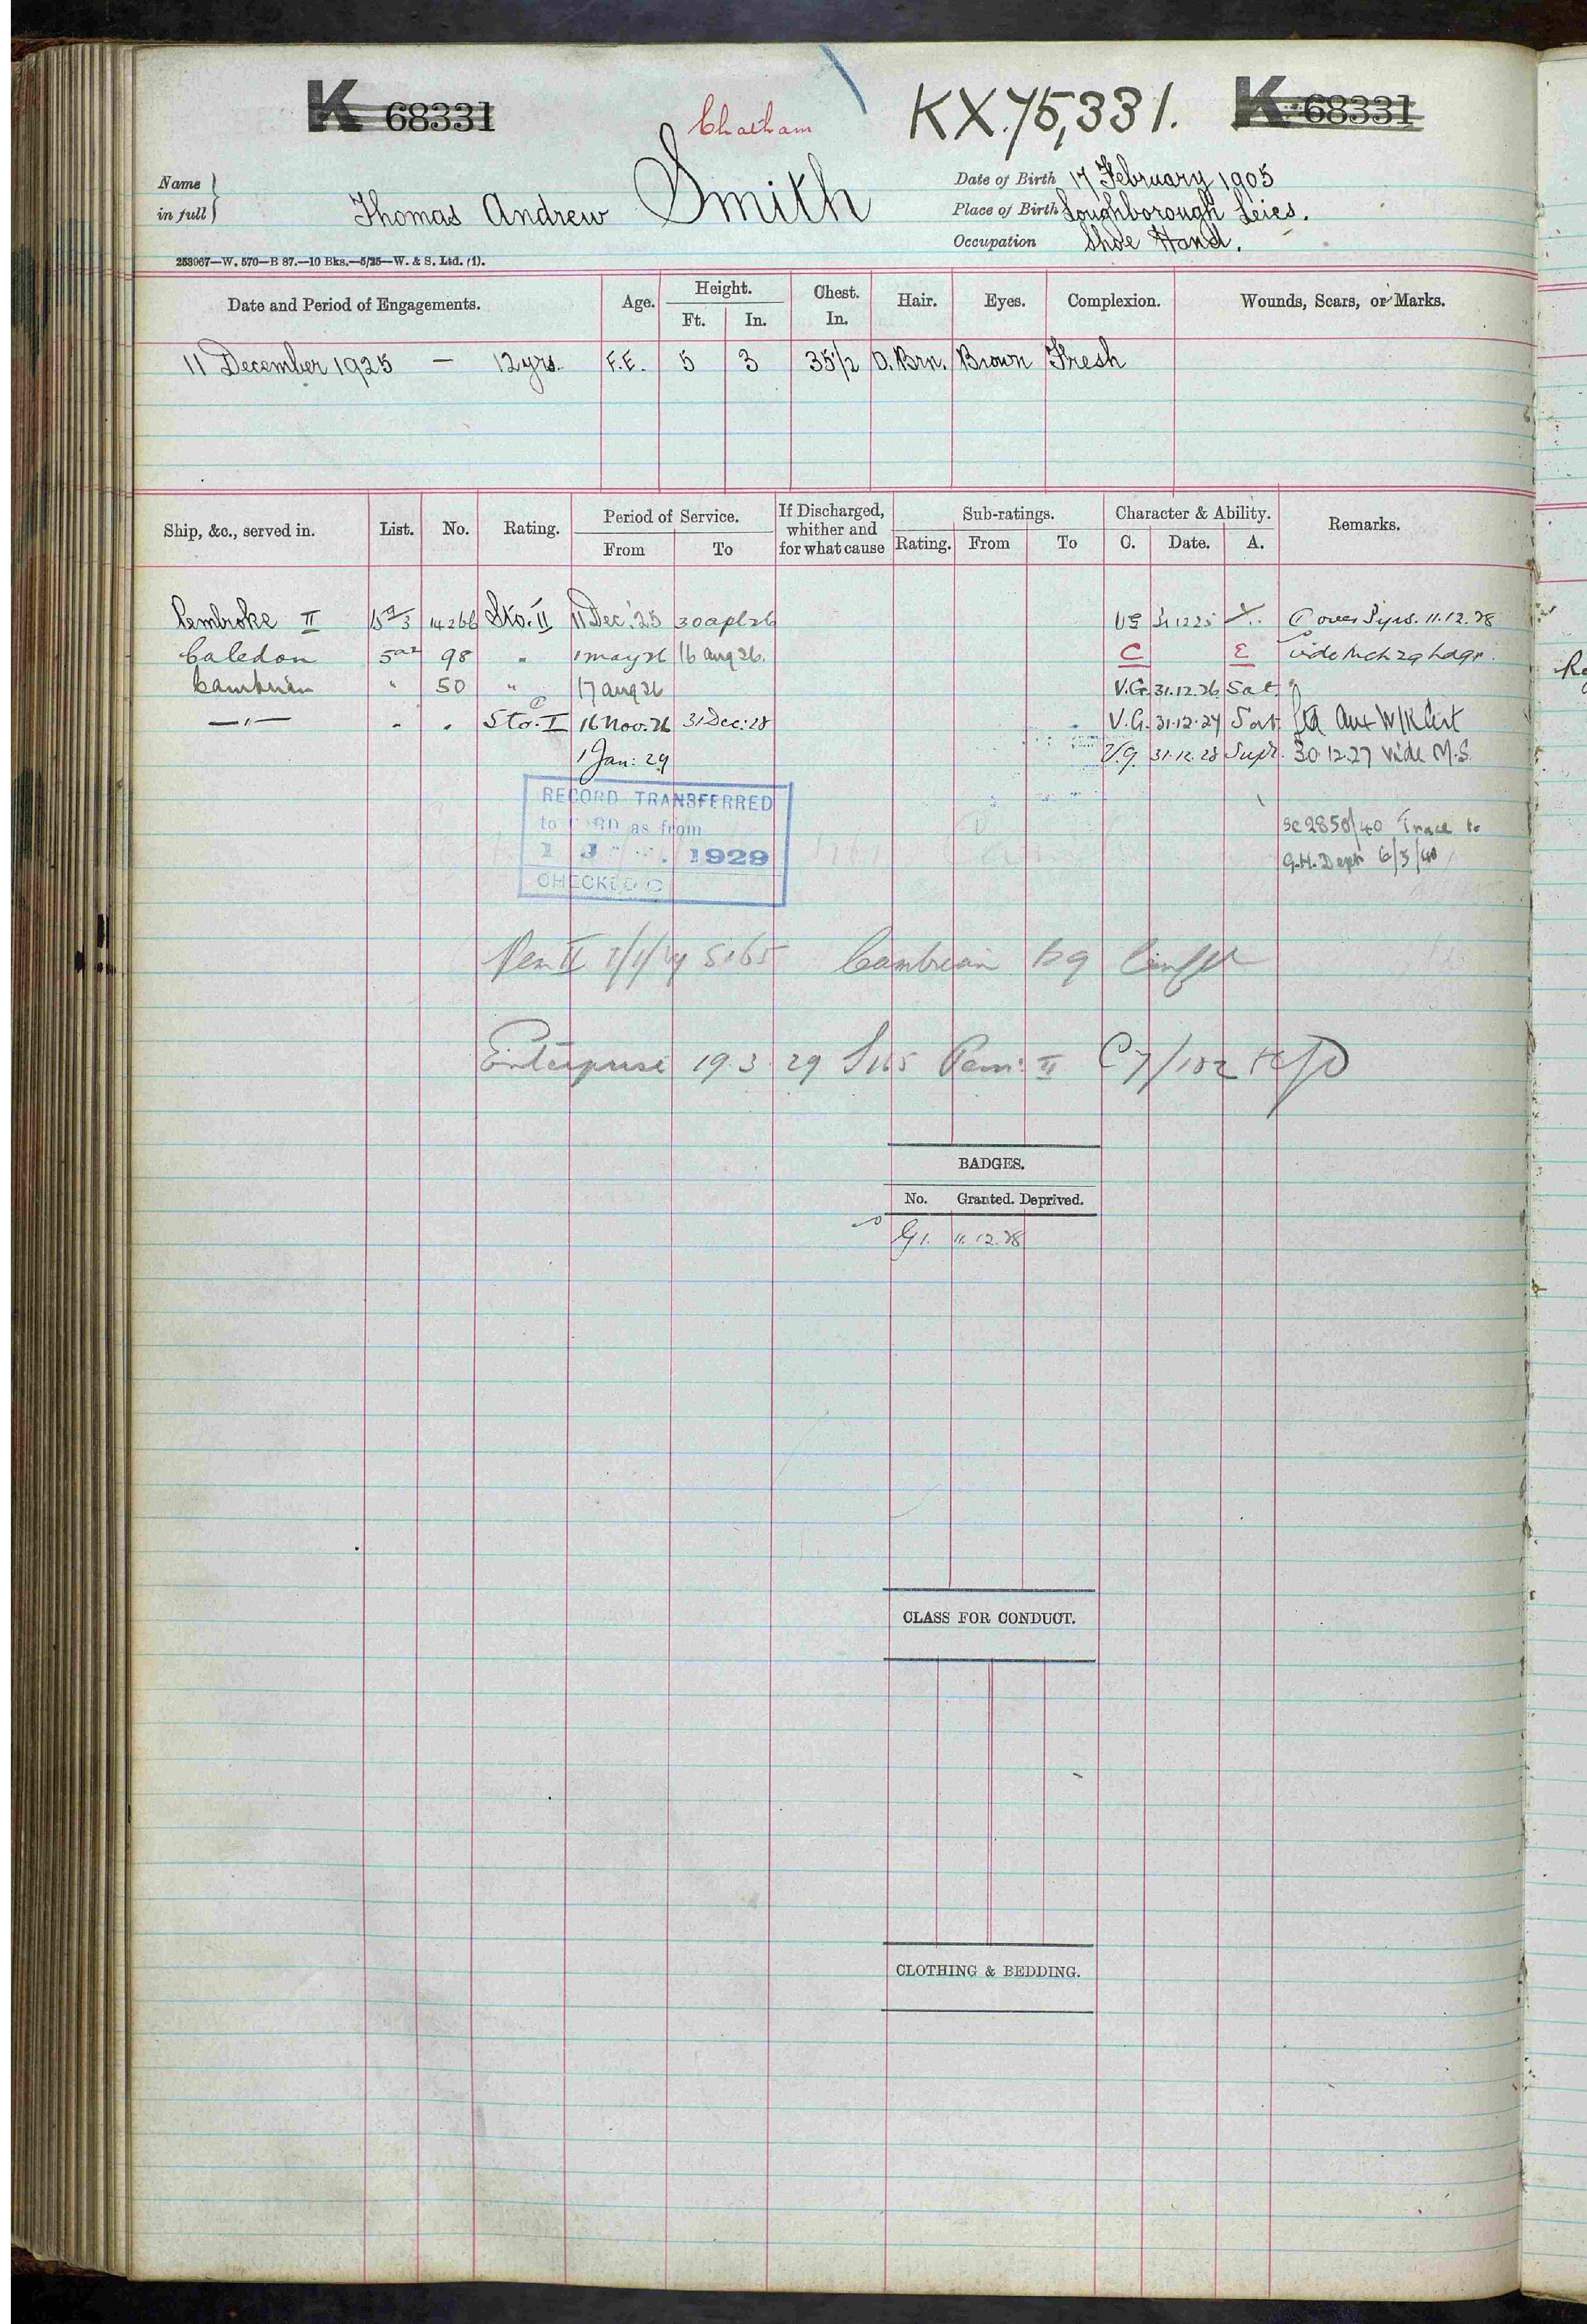 K 68331
Chatham
KX.75,331.
K 68331
Name in full
Thomas Andrew Smith
Date of Birth 17 February 1905
Place of Birth Loughborough Leics.
Occupation Shoe Hand.
253967—W. 570—B 87.—10 Bks.—5/25—W. & S. Ltd. (1).
Date and Period of Engagements. Age. Height. Ft. In. Chest. In. Hair. Eyes. Complexion. Wounds, Scars, or Marks.
11 December 1925 — 12 yrs. F.E. 5 3 35½ D. Brn. Brown Fresh
Ship, &c., served in. List. No. Rating. Period of Service. From To If Discharged, whither and for what cause Sub-ratings. Rating. From To Character & Ability. C. Date. A. Remarks.
Pembroke II 15a/3 14266 Sto. II 11 Dec. '25 30 apl 26 VG 31 12 25 C over 3 yrs. 11.12.28
Caledon 5a2 98 " 1 may 26 16 aug 26. C E vide
Cambrian " 50 " 17 aug 26 V.G. 31.12.26 Sat.
—"— " " Sto. I 16 Nov. 26 31 Dec: 28 V.G. 31.12.27 Sat. Aux W/K Cert
1 Jan: 29 V.G. 31.12.28 Supr. 30.12.27 vide M.S.
RECORD TRANSFERRED
to as from
1 1929
CHECKED
2850/40 Trace to
G.H. Dept 6/3/40
Pem II Cambrian
Enterprise 19.3.29 Pem: II
BADGES.
No. Granted. Deprived.
G1. 11.12.28
CLASS FOR CONDUCT.
CLOTHING & BEDDING.